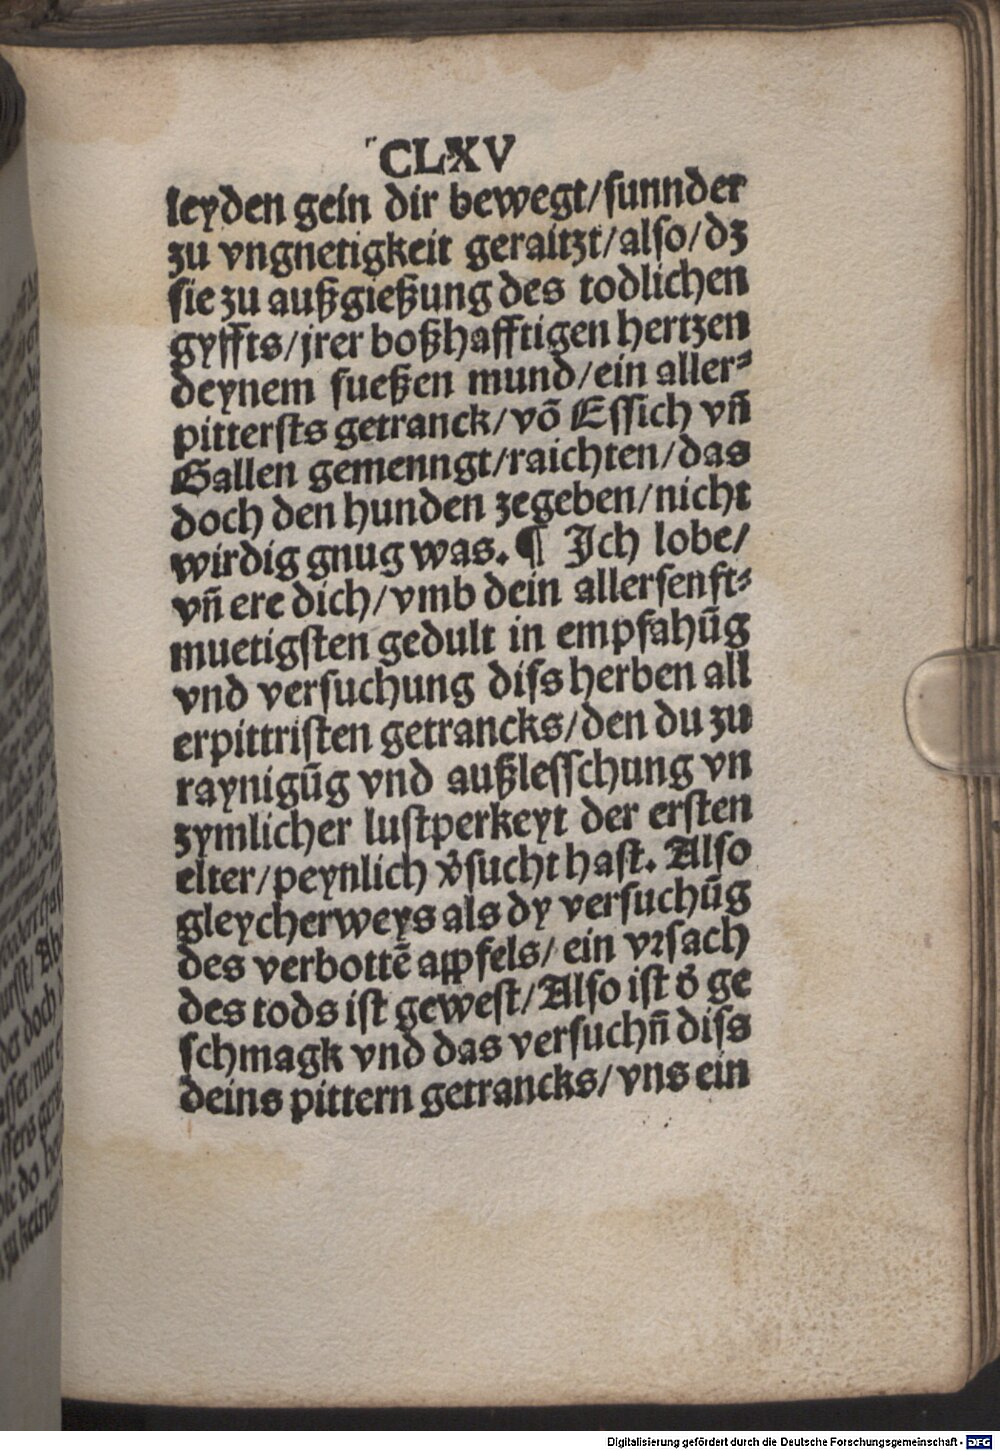 CLXV
leyden gein dir bewegt/sunnder
zu vngnetigkeit geraitzt/also/dz
sie zu außgießung des todlichen
gyffts/jrer boßhafftigen hertzen
deynem sueßen mund/ein aller⸗
pittersts getranck/võ Essich vñ
Gallen gemenngt/raichten/das
doch den hunden zegeben/nicht
wirdig gnug was. ¶ Jch lobe/
vñ ere dich/vmb dein allersenft⸗
muetigsten gedult in empfahūg
vnd versuchung diss herben all
erpittristen getrancks/den du zu
raynigūg vnd außlesschung vn
zymlicher lustperkeyt der ersten
elter/peynlich v̾sucht hast. Also
gleycherweys als dy versuchūg
des verbottē appfels/ein vꝛsach
des tods ist gewest/Also ist d̾ ge
schmagk vnd das versuchñ diss
deins pittern getrancks/vns ein
Digitalisierung gefördert durch die Deutsche Forschungsgemeinschaft - DFG